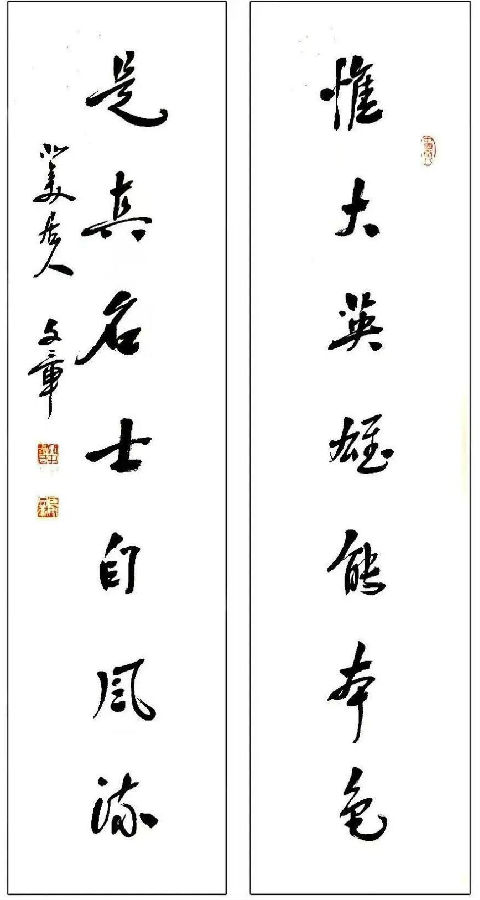 惟大英雄能本色
是真名士自风流
居人
文章